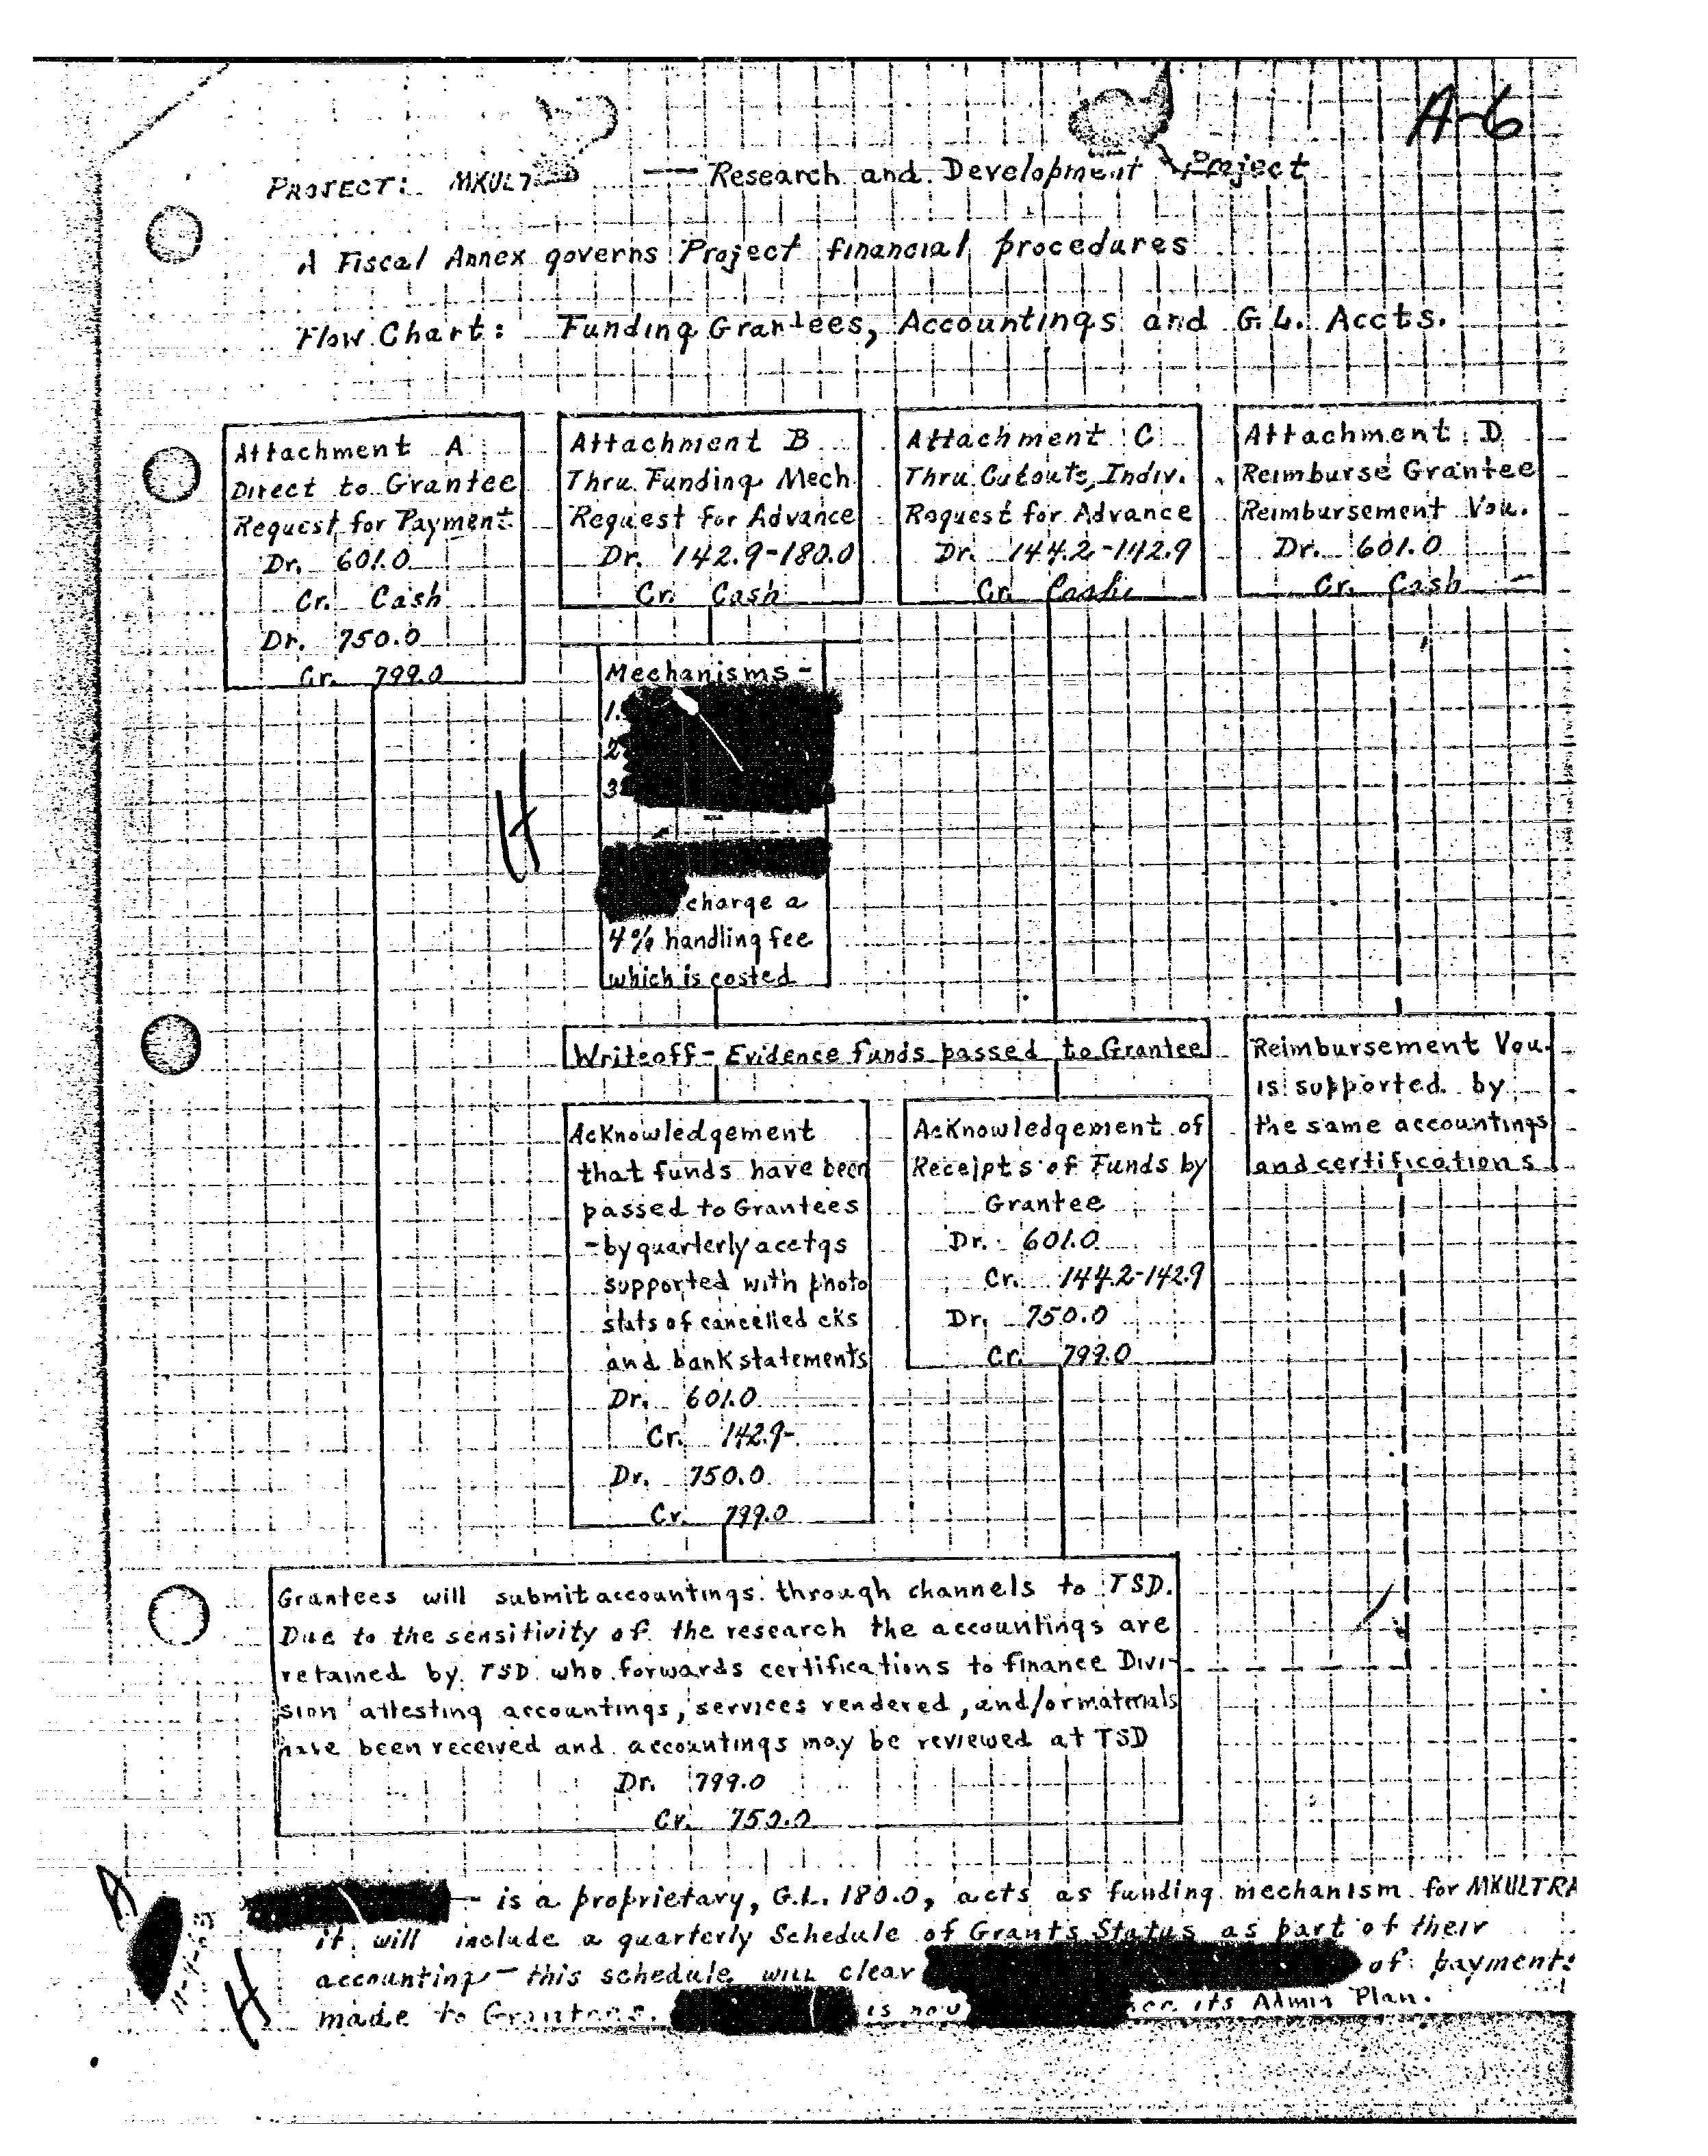 A-6
PROJECT: MKULT — Research and Development Project
A Fiscal Annex governs Project financial procedures
Flow Chart: Funding Grantees, Accountings and G.L. Accts.
Attachment A
Direct to Grantee
Request for Payment
Dr. 601.0
Cr. Cash
Dr. 750.0
Cr. 799.0
Attachment B
Thru Funding Mech
Request for Advance
Dr. 142.9-180.0
Cr. Cash
Attachment C
Thru Cutouts, Indiv.
Request for Advance
Dr. 144.2-142.9
Cr. Cash
Attachment D
Reimburse Grantee
Reimbursement Vou.
Dr. 601.0
Cr. Cash
Mechanisms -
1.
2
3
charge a
4% handling fee
which is costed
H
Writeoff - Evidence funds passed to Grantee
Reimbursement Vou.
is supported by
the same accountings
and certifications
Acknowledgement
that funds have been
passed to Grantees
- by quarterly acctgs
supported with photo
stats of cancelled cks
and bank statements
Dr. 601.0
Cr. 142.9-
Dr. 750.0
Cr. 799.0
Acknowledgement of
Receipts of Funds by
Grantee
Dr. 601.0
Cr. 144.2-142.9
Dr. 750.0
Cr. 799.0
Grantees will submit accountings through channels to TSD.
Due to the sensitivity of the research the accountings are
retained by TSD who forwards certifications to finance Divi-
sion attesting accountings, services rendered, and/or materials
have been received and accountings may be reviewed at TSD
Dr. 799.0
Cr. 750.0
A
H
- is a proprietary, G.L. 180.0, acts as funding mechanism for MKULTRA
it will include a quarterly Schedule of Grants Status as part of their
accounting - this schedule will clear of payments
made to Grantees. is now its Admin Plan.